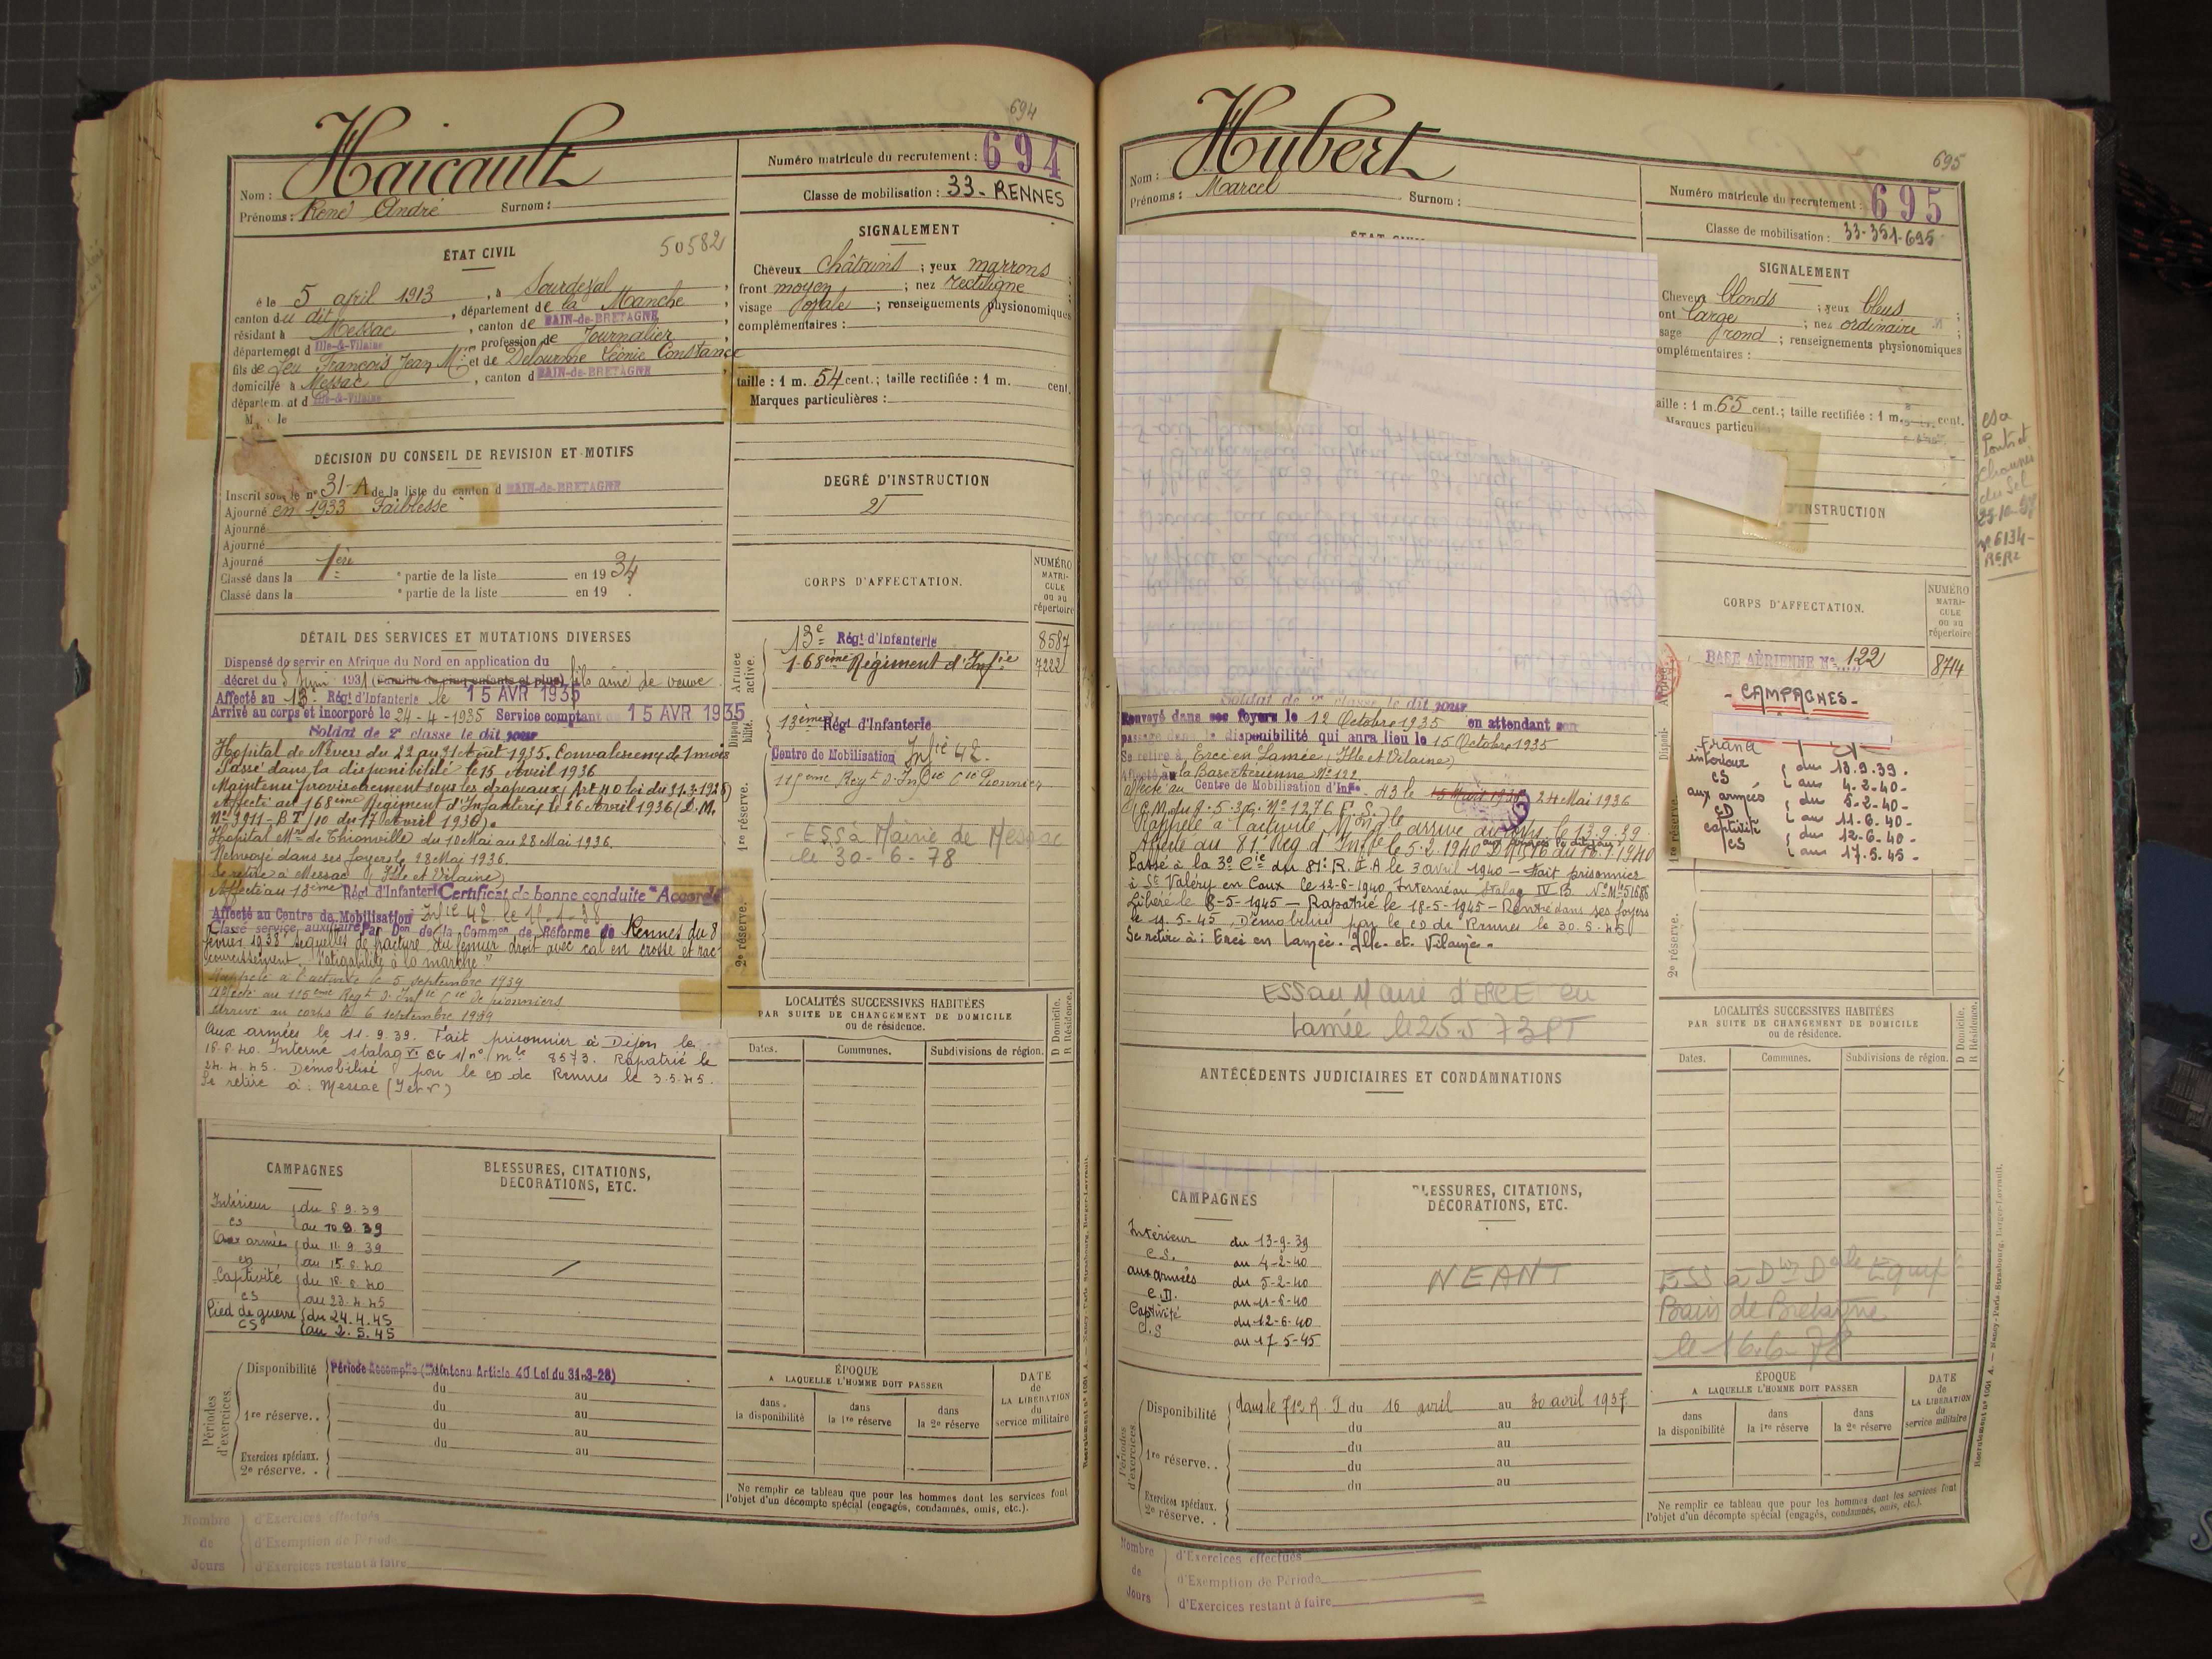 694
Haicault
Nom :
Prénoms : René André Surnom :
Numéro matricule du recrutement : 694
Classe de mobilisation : 33 - RENNES
ÉTAT CIVIL
50582
é le 5 avril 1913, à Sourdeval
canton du dit, département de la Manche
résidant à Messac, canton de BAIN-de-BRETAGNE
département d Ille-&-Vilaine, profession de Journalier
fils de feu François Jean M. et de Delourme Léonie Constance
domicilié à Messac, canton d BAIN-de-BRETAGNE
département d Ille-&-Vilaine
DÉCISION DU CONSEIL DE REVISION ET MOTIFS
Inscrit sous le n° 31-A de la liste du canton d BAIN-de-BRETAGNE
Ajourné en 1933 Faiblesse
Ajourné
Ajourné
Ajourné
Classé dans la 1ère partie de la liste en 1934
Classé dans la partie de la liste en 19 .
DÉTAIL DES SERVICES ET MUTATIONS DIVERSES
Dispensé de servir en Afrique du Nord en application du
décret du Juin 1931 fils aîné de veuve
Affecté au 13e Régt d'Infanterie le 15 AVR 1935
Arrivé au corps et incorporé le 24-4-1935 Service comptant du 15 AVR 1935
Soldat de 2e classe le dit jour
Hopital de Nevers du 22 au 31 Août 1935. Convalescence de 1 mois
Passé dans la disponibilité le 15 Avril 1936
Maintenu provisoirement sous les drapeaux (Art 40 loi du 31.3.1928)
Affecté au 168ème Régiment d'Infanterie le 26 Avril 1936 (D.M.
N° 9911-B.T/10 du 17 Avril 1936).
Hopital Mre de Thionville du 10 Mai au 28 Mai 1936.
Renvoyé dans ses foyers le 28 Mai 1936.
Se retire à Messac (Ille et Vilaine)
Affecté au 13ème Régt d'Infanterie Certificat de bonne conduite "Accordé"
Affecté au Centre de Mobilisation Infie 42
Classé service auxiliaire Par Don de la Common de Réforme de Rennes du 8
février 1938 "Sequelles de fracture du fémur droit avec cal en crosse et rac-
courcissement. Fatigabilité à la marche."
Rappelé à l'activité le 5 septembre 1939
Affecté au 115ème Regt d'Infie Cie de pionniers
Arrivé au corps le 6 septembre 1939
Aux armées le 11.9.39. Fait prisonnier à Dijon le
16.6.40. Interné stalag VI G s/ n° mle 8573. Rapatrié le
24.4.45. Démobilisé par le CD de Rennes le 3.5.45.
Se retire à : Messac (I et V)
CAMPAGNES
Intérieur du 6.9.39
CS au 10.9.39
Aux armées du 11.9.39
CD au 15.6.40
Captivité du 16.6.40
CS au 23.4.45
Pied de guerre du 24.4.45
CS au 2.5.45
BLESSURES, CITATIONS,
DÉCORATIONS, ETC.
Périodes d'exercices.
Disponibilité Période accomplie (Maintenu Article 40 Loi du 31-3-28)
du au
1re réserve.. du au
du au
du au
Exercices spéciaux.
2e réserve. .
Nombre de Jours
d'Exercices effectués
d'Exemption de Période
d'Exercices restant à faire
SIGNALEMENT
Cheveux châtains ; yeux marrons ;
front moyen ; nez rectiligne ;
visage ovale ; renseignements physionomiques
complémentaires :
taille : 1 m. 54 cent.; taille rectifiée : 1 m. cent.
Marques particulières :
DEGRÉ D'INSTRUCTION
2
CORPS D'AFFECTATION.
NUMÉRO MATRI-CULE ou au répertoire
Armée active.
13e Régt d'Infanterie 8587
168ème Régiment d'Infie 7222
Disponibilité.
13ème Régt d'Infanterie
Centre de Mobilisation Infie 42.
1re réserve.
115ème Regt d'Infie Cie Pionniers
- ESS à Mairie de Messac
le 30-6-78
2e réserve.
LOCALITÉS SUCCESSIVES HABITÉES
PAR SUITE DE CHANGEMENT DE DOMICILE
ou de résidence.
D Domicile.
R Résidence.
Dates. Communes. Subdivisions de région.
ÉPOQUE
A LAQUELLE L'HOMME DOIT PASSER
dans la disponibilité
dans la 1re réserve
dans la 2e réserve
DATE de LA LIBÉRATION du service militaire
Ne remplir ce tableau que pour les hommes dont les services font
l'objet d'un décompte spécial (engagés, condamnés, omis, etc.).
695
Hubert
Nom :
Prénoms : Marcel Surnom :
Numéro matricule du recrutement : 695
Classe de mobilisation : 33-351-695
Soldat de 2e classe le dit jour
Renvoyé dans ses foyers le 12 Octobre 1935 en attendant son
passage dans la disponibilité qui aura lieu le 15 Octobre 1935
Se retire à Ercé en Lamée (Ille et Vilaine)
Affecté à la Base Aérienne N° 122.
affecté au Centre de Mobilisation d'Infie 43 le 24 Mai 1936
Rappelé à l'activité arrivé au corps le 13.9.39
Affecté au 81e Rég d'Infie le 5.2.1940
Passé à la 3e Cie du 81e R.I.A le 3 avril 1940 - Fait prisonnier
à St Valéry en Caux le 12-6-1940. Interné au Stalag IV B. N° Mle 51686
Libéré le 8-5-1945 - Rapatrié le 18-5-1945 - Rentré dans ses foyers
le 19.5-45. Démobilisé par le CD de Rennes le 30.5.45
Se retire à : Ercé en Lamée. Ille et Vilaine.
ESS au Maire d'ERCE en
Lamée le 25.5 73 PT
ANTÉCÉDENTS JUDICIAIRES ET CONDAMNATIONS
CAMPAGNES
Intérieur du 13-9-39
C.S. au 4-2-40
aux armées du 5-2-40
C.D. au 11-6-40
Captivité du 12-6-40
C.S au 17 5-45
BLESSURES, CITATIONS,
DÉCORATIONS, ETC.
NEANT
Périodes d'exercices.
Disponibilité dans le 71e R.I du 16 avril au 30 avril 1937.
du au
1re réserve.. du au
du au
du au
Exercices spéciaux.
2e réserve. .
Nombre de Jours
d'Exercices effectués
d'Exemption de Période
d'Exercices restant à faire
SIGNALEMENT
Cheveux blonds ; yeux bleus ;
ont large ; nez ordinaire ;
sage rond ; renseignements physionomiques
omplémentaires :
aille : 1 m. 65 cent.; taille rectifiée : 1 m. cent.
Marques particul
INSTRUCTION
ESS à
Ponts et
Chaussées
du Sel
25-10-
n° 6134-
RERE
CORPS D'AFFECTATION.
NUMÉRO MATRI-CULE ou au répertoire
BASE AÉRIENNE N° 122 8714
- CAMPAGNES -
intérieur du 13.9.39.
CS au 4-2-40-
aux armées du 5-2-40-
CD au 11-6-40-
captivité du 12-6-40-
CS au 17.5-45-
1re réserve.
2e réserve.
LOCALITÉS SUCCESSIVES HABITÉES
PAR SUITE DE CHANGEMENT DE DOMICILE
ou de résidence.
D Domicile.
R Résidence.
Dates. Communes. Subdivisions de région.
ESS à Don Dale Equipt
Bain de Bretagne
le 16.6-78
ÉPOQUE
A LAQUELLE L'HOMME DOIT PASSER
dans la disponibilité
dans la 1re réserve
dans la 2e réserve
DATE de LA LIBÉRATION du service militaire
Ne remplir ce tableau que pour les hommes dont les services font
l'objet d'un décompte spécial (engagés, condamnés, omis, etc.).